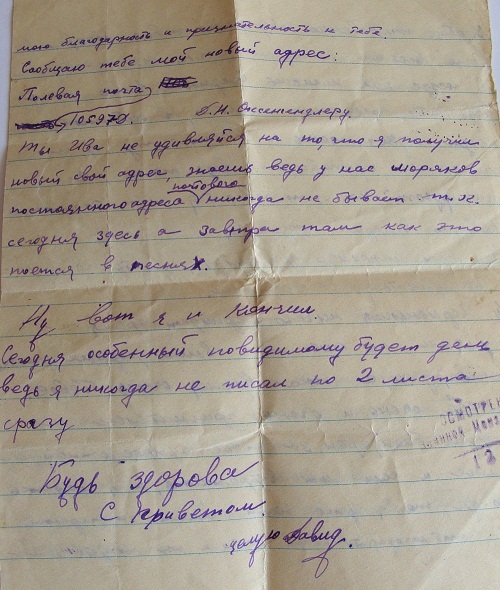 мою благодарность и признательность к тебе.
Сообщаю тебе мой новый адрес:
Полевая почта
105970. Д.Н.
Ты Ива не удивляйся на то, что я получил
новый свой адрес, знаешь ведь у нас моряков
постоянного адреса почтового никогда не бывает т.к.
сегодня здесь а завтра там как это
поется в песнях.
Ну вот я и кончил.
Сегодня особенный повидимому будет день
ведь я никогда не писал по 2 листа
сразу
Будь здорова
С приветом
целую Давид.
ОСМОТРЕНО